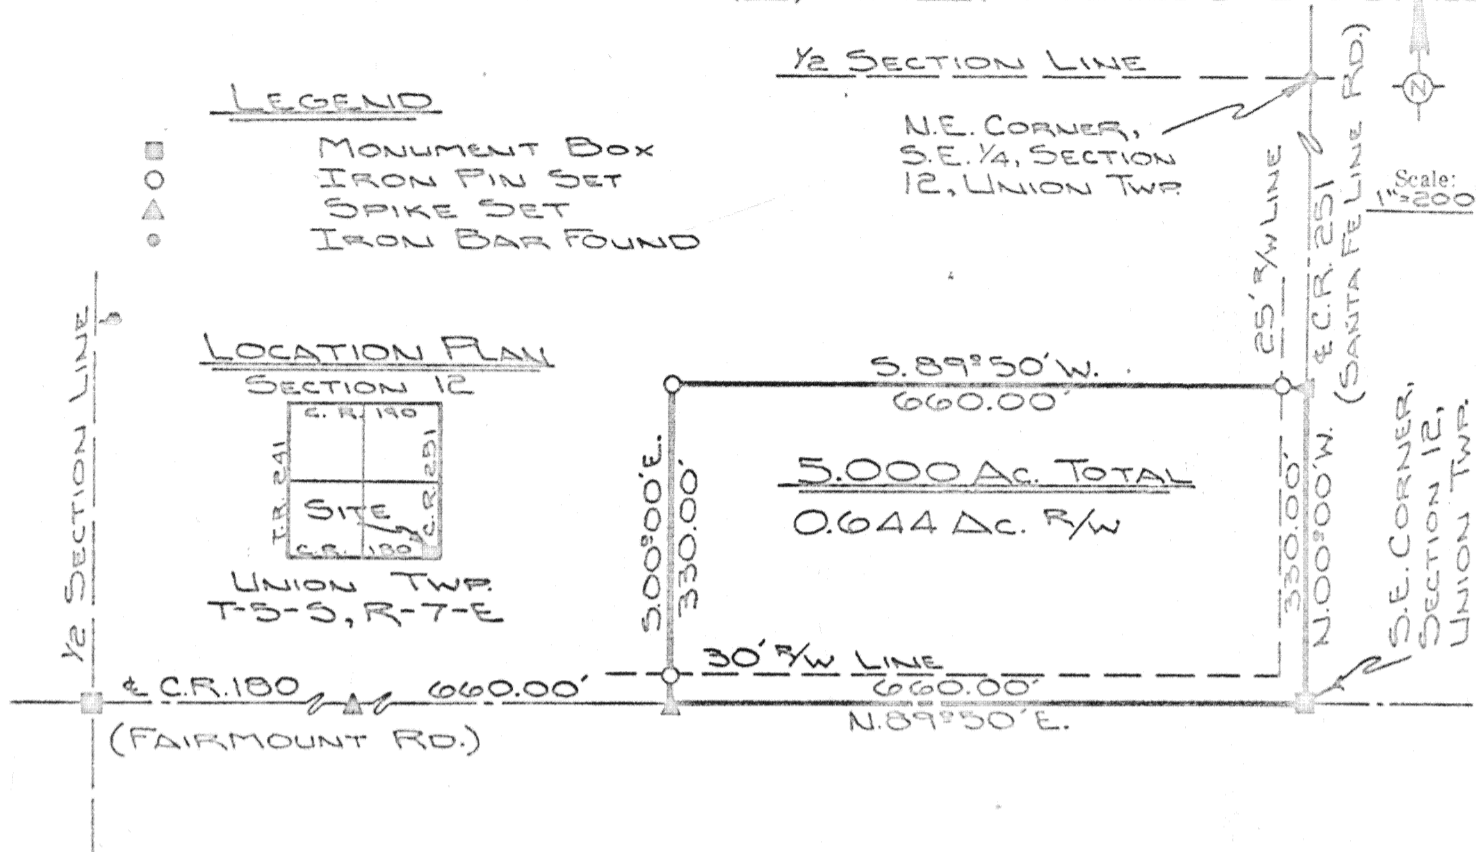 1/2 SECTION LINE
LEGEND
MONUMENT BOX
IRON PIN SET
SPIKE SET
IRON BAR FOUND
N.E. CORNER,
S.E. 1/4, SECTION
12, UNION TWP.
Scale:
1"=200
N
25' R/W LINE
℄ C.R. 251
(SANTA FE LINE RD.)
1/2 SECTION LINE
LOCATION PLAN
SECTION 12
C. R. 190
T.R. 241
C.R. 251
SITE
C.R. 180
UNION TWP.
T-5-S, R-7-E
S. 89°50' W.
660.00'
S.00°00'E.
330.00'
5.000 AC. TOTAL
0.644 AC. R/W
330.00'
N.00°00'W.
S.E. CORNER,
SECTION 12,
UNION TWP.
30' R/W LINE
℄ C.R. 180
660.00'
660.00'
N.89°50'E.
(FAIRMOUNT RD.)